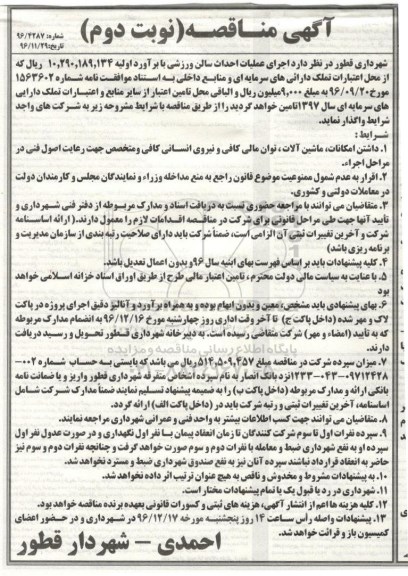 آگهی مناقصه (نوبت دوم)
شماره: ۹۶/۴۲۸۷
تاریخ: ۹۶/۱۱/۲۹
شهرداری قطور در نظر دارد اجرای عملیات احداث سالن ورزشی با برآورد اولیه ۱۰,۲۹۰,۱۸۹,۱۳۴ ریال که
از محل اعتبارات تملک دارائی های سرمایه ای و منابع داخلی به استناد موافقت نامه شماره ۱۵۶۳۶۰۲
مورخ ۹۶/۰۹/۲۰ به مبلغ ۹,۰۰۰ میلیون ریال و الباقی محل تامین اعتبار از سایر منابع و اعتبارات تملک دارایی
های سرمایه ای سال ۱۳۹۷ تامین خواهد گردید را از طریق مناقصه با شرایط مشروحه زیر به شرکت های واجد
شرایط واگذار نماید.
شرایط:
۱. داشتن امکانات، ماشین آلات، توان مالی کافی و نیروی انسانی کافی ومتخصص جهت رعایت اصول فنی در
مراحل اجراء.
۲. اقرار به عدم شمول ممنوعیت موضوع قانون راجع به منع مداخله وزراء و نمایندگان مجلس و کارمندان دولت
در معاملات دولتی و کشوری.
۳. متقاضیان می توانند با مراجعه حضوری نسبت به دریافت اسناد و مدارک مربوطه از دفتر فنی شهرداری و
تأیید آنها جهت طی مراحل قانونی برای شرکت در مناقصه اقدامات لازم را معمول دارند. (ارائه اساسنامه
شرکت و آخرین تغییرات ثبتی آن الزامی است، ضمناً شرکت باید دارای صلاحیت رتبه بندی از سازمان مدیریت و
برنامه ریزی باشد)
۴. کلیه پیشنهادات باید بر اساس فهرست بهای ابنیه سال ۹۶ و بدون اعمال تعدیل باشد.
۵. با عنایت به سیاست مالی دولت محترم، تامین اعتبار مالی طرح از طریق اوراق اسناد خزانه اسلامی خواهد
بود
۶. بهای پیشنهادی باید مشخص، معین و بدون ابهام بوده و به همراه برآورد و آنالیز دقیق اجرای پروژه در پاکت
لاک و مهر شده (داخل پاکت ج) تا آخر وقت اداری روز چهارشنبه مورخ ۹۶/۱۲/۱۶ به انضمام مدارک مربوطه
که به تأیید (امضاء و مهر) شرکت متقاضی رسیده است، به دبیرخانه شهرداری قطور تحویل و رسید دریافت
دارند.
۷. میزان سپرده شرکت در مناقصه مبلغ ۵۱۴,۵۰۹,۴۵۷ ریال می باشد که بایستی به حساب شماره ۰۰۲-
۰۹۷۱۲۴۲۸-۰۴۳-۲۳۳ نزد بانک انصار به نام سپرده اشخاص متفرقه شهرداری قطور واریز و یا ضمانت نامه
بانکی ارائه و مدارک مربوطه (داخل پاکت ب) را به ضمیمه پیشنهاد تسلیم نمایند ضمناً مدارک شرکت شامل
اساسنامه، آخرین تغییرات ثبتی و رتبه شرکت باید در (داخل پاکت الف) ارائه گردد.
۸. متقاضیان می توانند جهت کسب اطلاعات بیشتر به واحد فنی و عمرانی شهرداری مراجعه نمایند.
۹. سپرده نفرات اول تا سوم شرکت کنندگان تا زمان انعقاد پیمان با نفر اول نگهداری و در صورت عدول نفر اول
سپرده او به نفع شهرداری ضبط و معامله با نفرات دوم و سوم صورت خواهد گرفت و چنانچه نفرات دوم و سوم نیز
حاضر به انعقاد قرارداد نباشند سپرده آنان نیز به نفع صندوق شهرداری ضبط و مسترد نخواهد شد.
۱۰. به پیشنهادات مشروط و مخدوش و ناقص به هیچ عنوان ترتیب اثر داده نخواهد شد.
۱۱. شهرداری در رد یا قبول یک یا تمام پیشنهادات مختار است.
۱۲. کلیه هزینه ها اعم از انتشار آگهی، هزینه های ثبتی و کسورات قانونی بعهده برنده مناقصه خواهد بود.
۱۳. پیشنهادات واصله رأس ساعت ۱۴ روز پنجشنبه مورخه ۹۶/۱۲/۱۷ در شهرداری و در حضور اعضای
کمیسیون باز و قرائت خواهد شد.
احمدی - شهردار قطور
پایگاه اطلاع رسانی مناقصه و مزایده